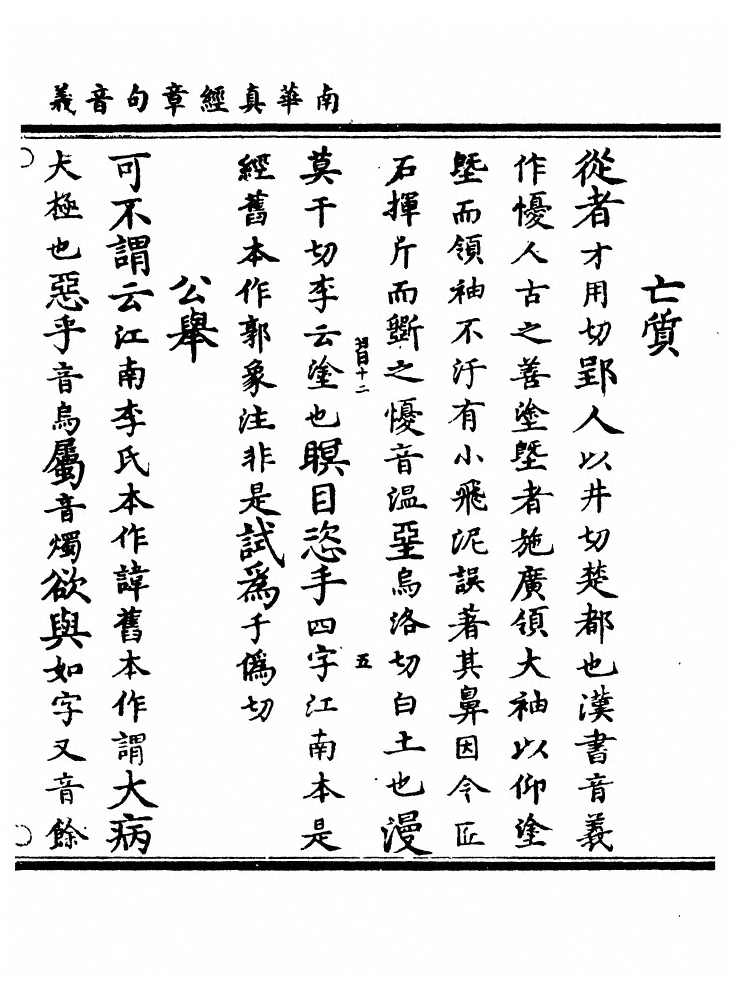 南華真經章句音義
亡質
從者才用切郢人以井切楚都也漢書音義
作懮人古之善塗塈者施廣領大袖以仰塗
塈而領袖不汙有小飛泥誤著其鼻因令匠
石揮斤而斲之懮音温堊烏洛切白土也漫
習十二
五
莫干切李云塗也瞑目恣手四字江南本是
經舊本作郭象注非是試爲于僞切
公舉
可不謂云江南李氏本作諱舊本作謂大病
大極也惡乎音烏屬音燭欲與如字又音餘